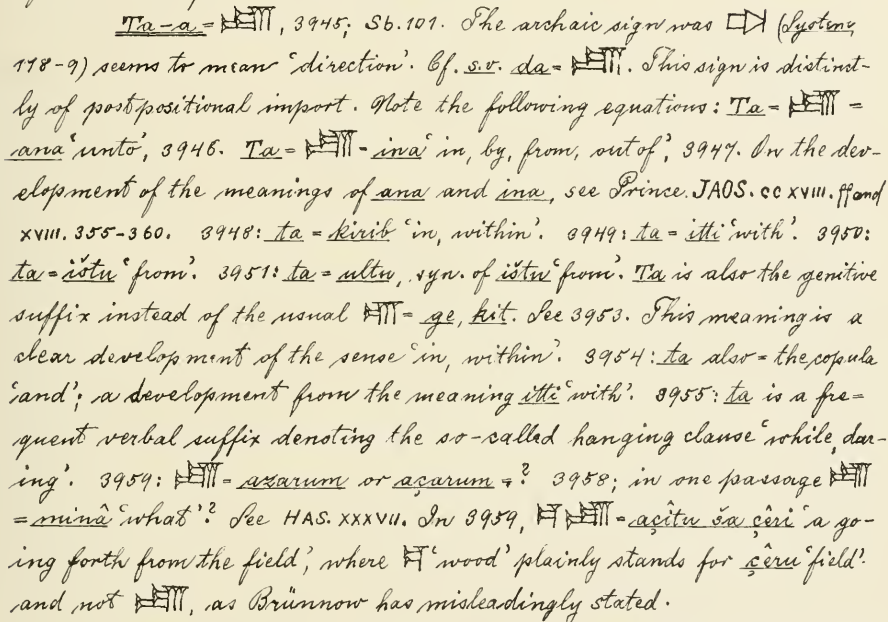 Ta-a = 𒋫, 3945; Sb. 101. The archaic sign was (System,
178-9) seems to mean 'direction'. Cf. s.v. da = 𒋫. This sign is distinct-
ly of postpositional import. Note the following equations: Ta = 𒋫 =
ana 'unto', 3946. Ta = 𒋫 - ina 'in, by, from, out of', 3947. On the dev-
elopment of the meanings of ana and ina, see Prince. JAOS. cc XVIII. ff and
XVIII. 355-360. 3948: ta = kirib 'in, within'. 3949: ta = itti 'with'. 3950:
ta = ištu 'from'. 3951: ta = ultu, syn. of ištu 'from'. Ta is also the genitive
suffix instead of the usual = ge, kit. See 3953. This meaning is a
clear development of the sense 'in, within'. 3954: ta also = the copula
'and'; a development from the meaning itti 'with'. 3955: ta is a fre=
quent verbal suffix denoting the so-called hanging clause 'while, dur-
ing'. 3959: 𒋫 - azarum or açarum = ? 3958; in one passage 𒋫
= minâ 'what'? See HAS. XXXVII. In 3959, 𒄑 𒋫 - açîtu ša çêri 'a go-
ing forth from the field', where 𒄑 'wood' plainly stands for çêru 'field'.
and not 𒋫, as Brünnow has misleadingly stated.